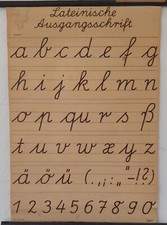 Lateinische
Ausgangsschrift
a b c d e f g
h i j k l m n
o p q u r s ß
t u v w x y z
ä ö ü ( . , ; : „ “ – ! ? )
1 2 3 4 5 6 7 8 9 0